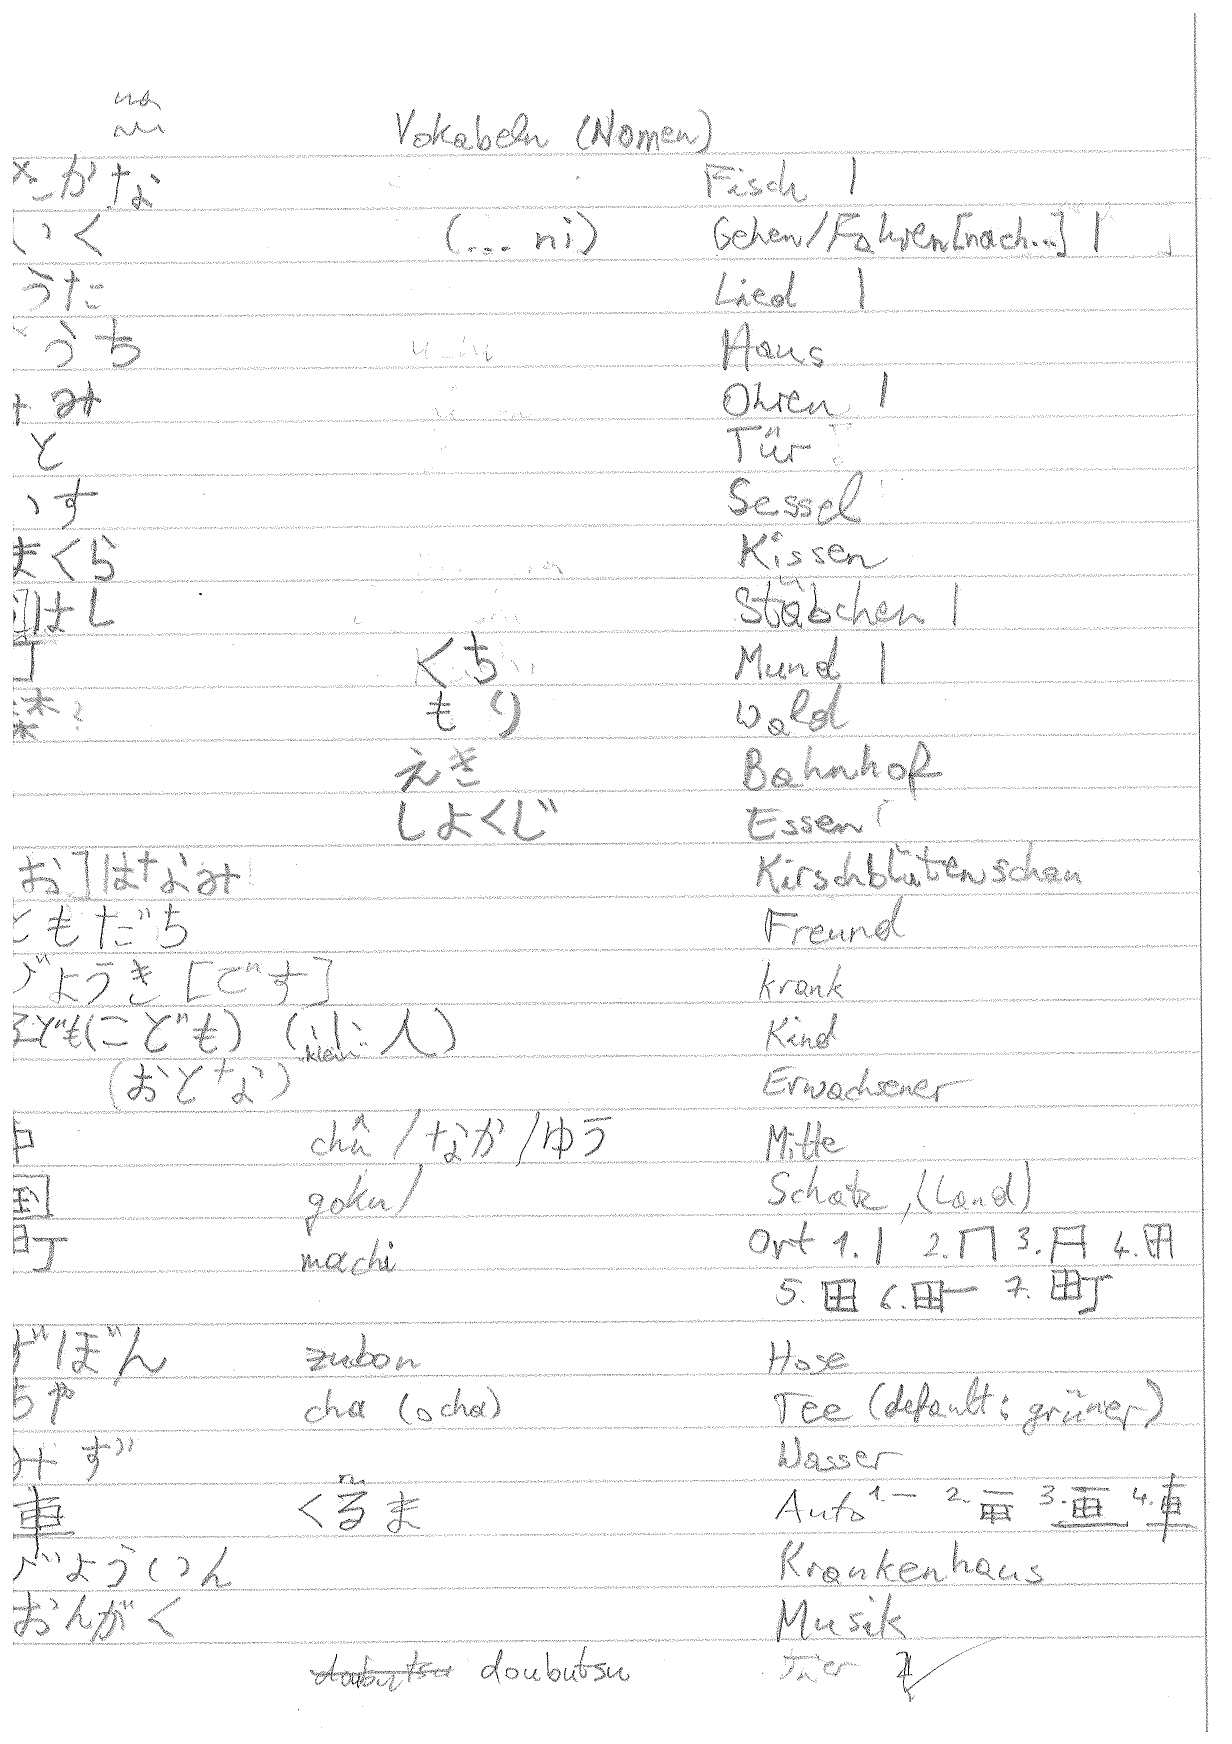 na
Vokabeln (Nomen)
さかな Fisch |
いく (... ni) Gehen/Fahren [nach...] |
うた Lied |
うち Haus
みみ Ohren |
と Tür
いす Sessel
まくら Kissen
はし Stäbchen |
くち Mund |
森? もり Wald
えき Bahnhof
しよくじ Essen
お]はなみ Kirschblütenschau
ともだち Freund
びようき [です] krank
こども(こども) (小: 人) Kind
klein
(おとな) Erwachsener
中 chû / なか / ゆう Mitte
国 goku / Schatz, (Land)
町 machi Ort 1. | 2. 冂 3. 4. 田
5. 田 6. 7. 町
ずぼん zubon Hose
ちや cha (ocha) Tee (default: grüner)
みず Wasser
車 くるま Auto 1. 一 2. 3. 4. 車
びょういん Krankenhaus
おんがく Musik
doubutsu Tier